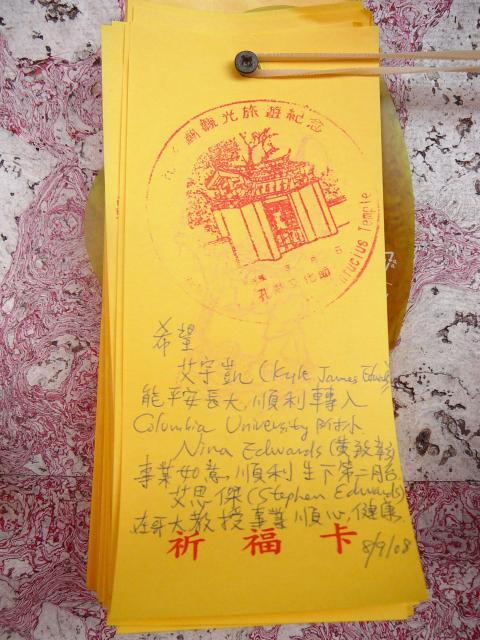 孔廟觀光旅遊紀念
孔廟文化節
Confucius Temple
希望
艾宇凱 (Kyle James Edwards)
能平安長大,順利轉入
Columbia University 附小
Nina Edwards (黃
事業如意,順利生下第二胎
艾思傑 (Stephen Edwards)
在哥大教授事業順心,健康.
8/9/08
祈福卡